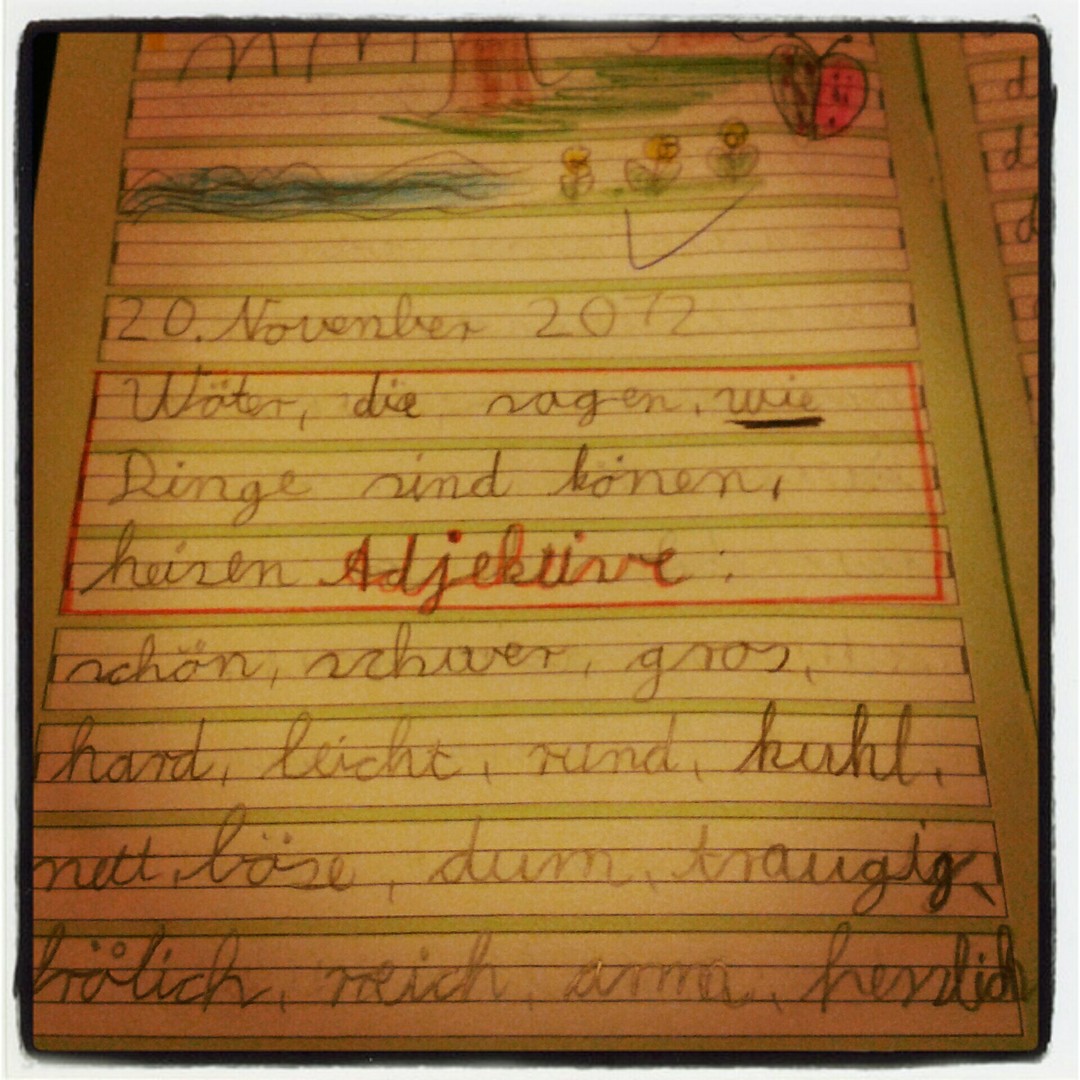 20. November 2012
Wöter, die sagen, wie
Dinge sind könen,
heisen Adjektive:
schön, schwer, gros,
hard, leicht, rund, kuhl,
nett, böse, dum, traugig,
frölich, reich, arm, herzlich
d
d
d